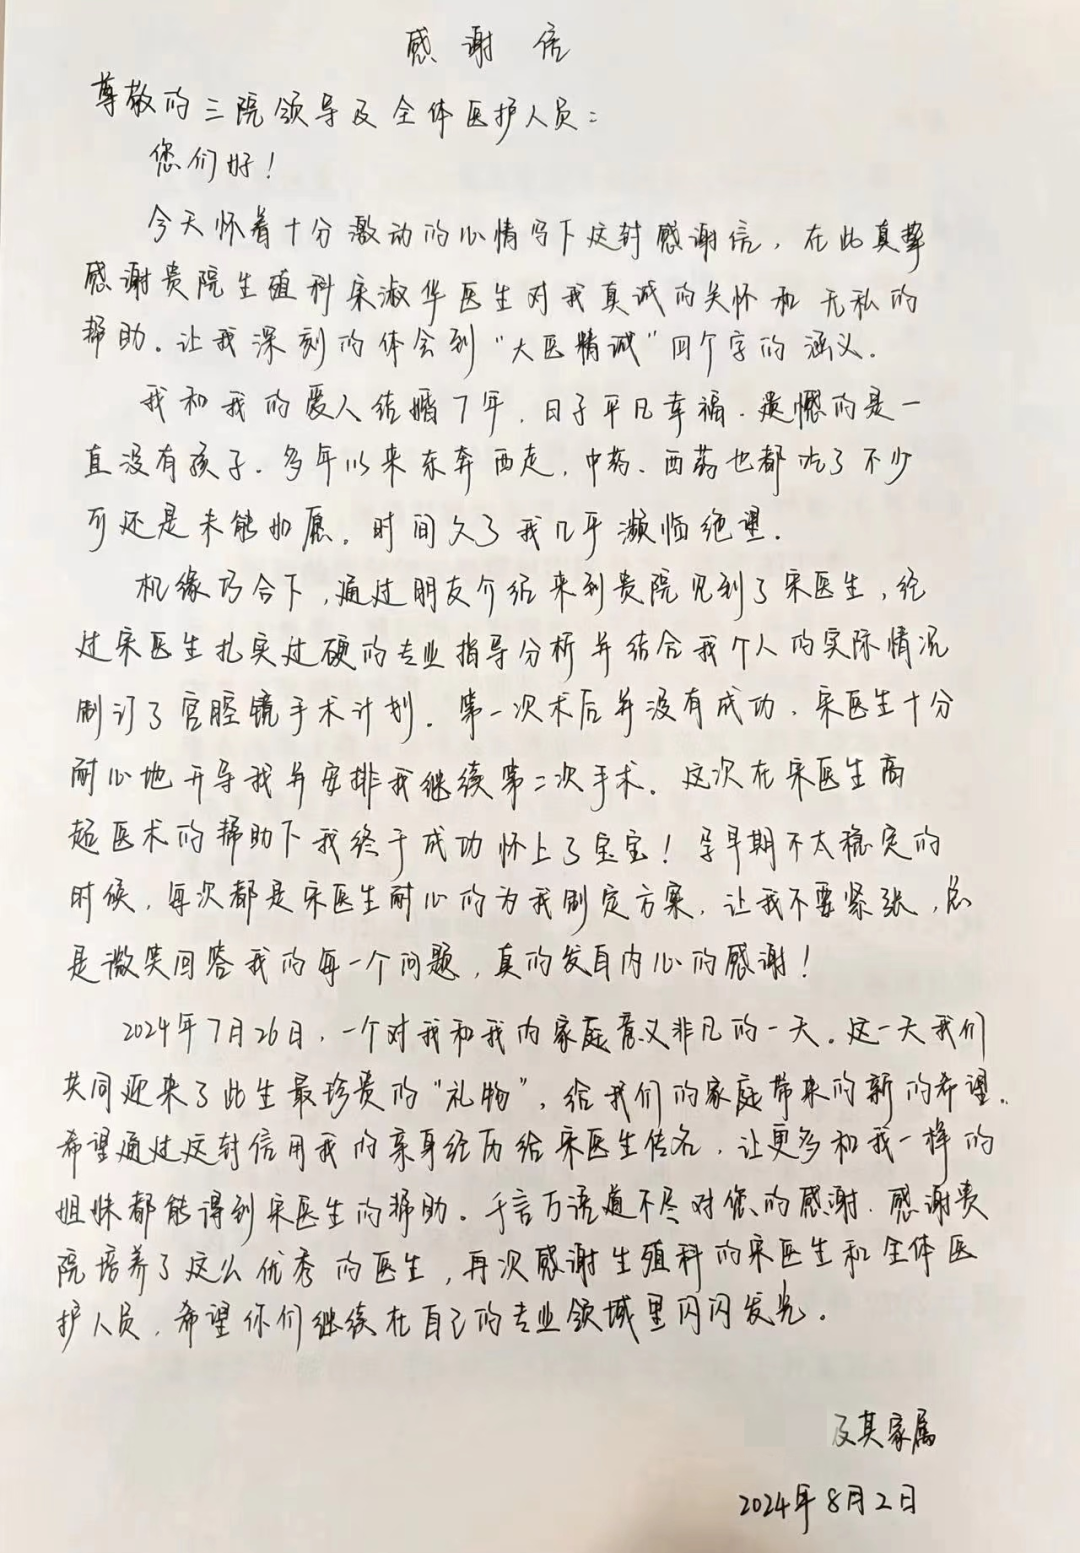 感谢信
尊敬的三院领导及全体医护人员：
您们好！
今天怀着十分激动的心情写下这封感谢信，在此真挚
感谢贵院生殖科宋淑华医生对我真诚的关怀和无私的
帮助。让我深刻的体会到“大医精诚”四个字的涵义。
我和我的爱人结婚7年，日子平凡幸福．遗憾的是一
直没有孩子．多年以来东奔西走，中药、西药也都吃了不少
可还是未能如愿。时间久了我几乎濒临绝望．
机缘巧合下，通过朋友介绍来到贵院见到了宋医生，经
过宋医生扎实过硬的专业指导分析并结合我个人的实际情况
制订了宫腔镜手术计划．第一次术后并没有成功．宋医生十分
耐心地开导我并安排我继续第二次手术．这次在宋医生高
超医术的帮助下我终于成功怀上了宝宝！孕早期不太稳定的
时候，每次都是宋医生耐心的为我制定方案，让我不要紧张，总
是微笑回答我的每一个问题，真的发自内心的感谢！
2024年7月26日，一个对我和我的家庭意义非凡的一天。这一天我们
共同迎来了此生最珍贵的“礼物”，给我们的家庭带来的新的希望．
希望通过这封信用我的亲身经历给宋医生传名，让更多和我一样的
姐妹都能得到宋医生的帮助。千言万语道不尽对您的感谢．感谢贵
院培养了这么优秀的医生，再次感谢生殖科的宋医生和全体医
护人员，希望你们继续在自己的专业领域里闪闪发光。
及其家属
2024年8月2日